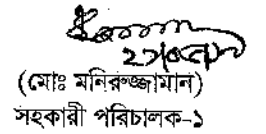 (মোঃ মনিরুজ্জামান)
সহকারী পরিচালক-১